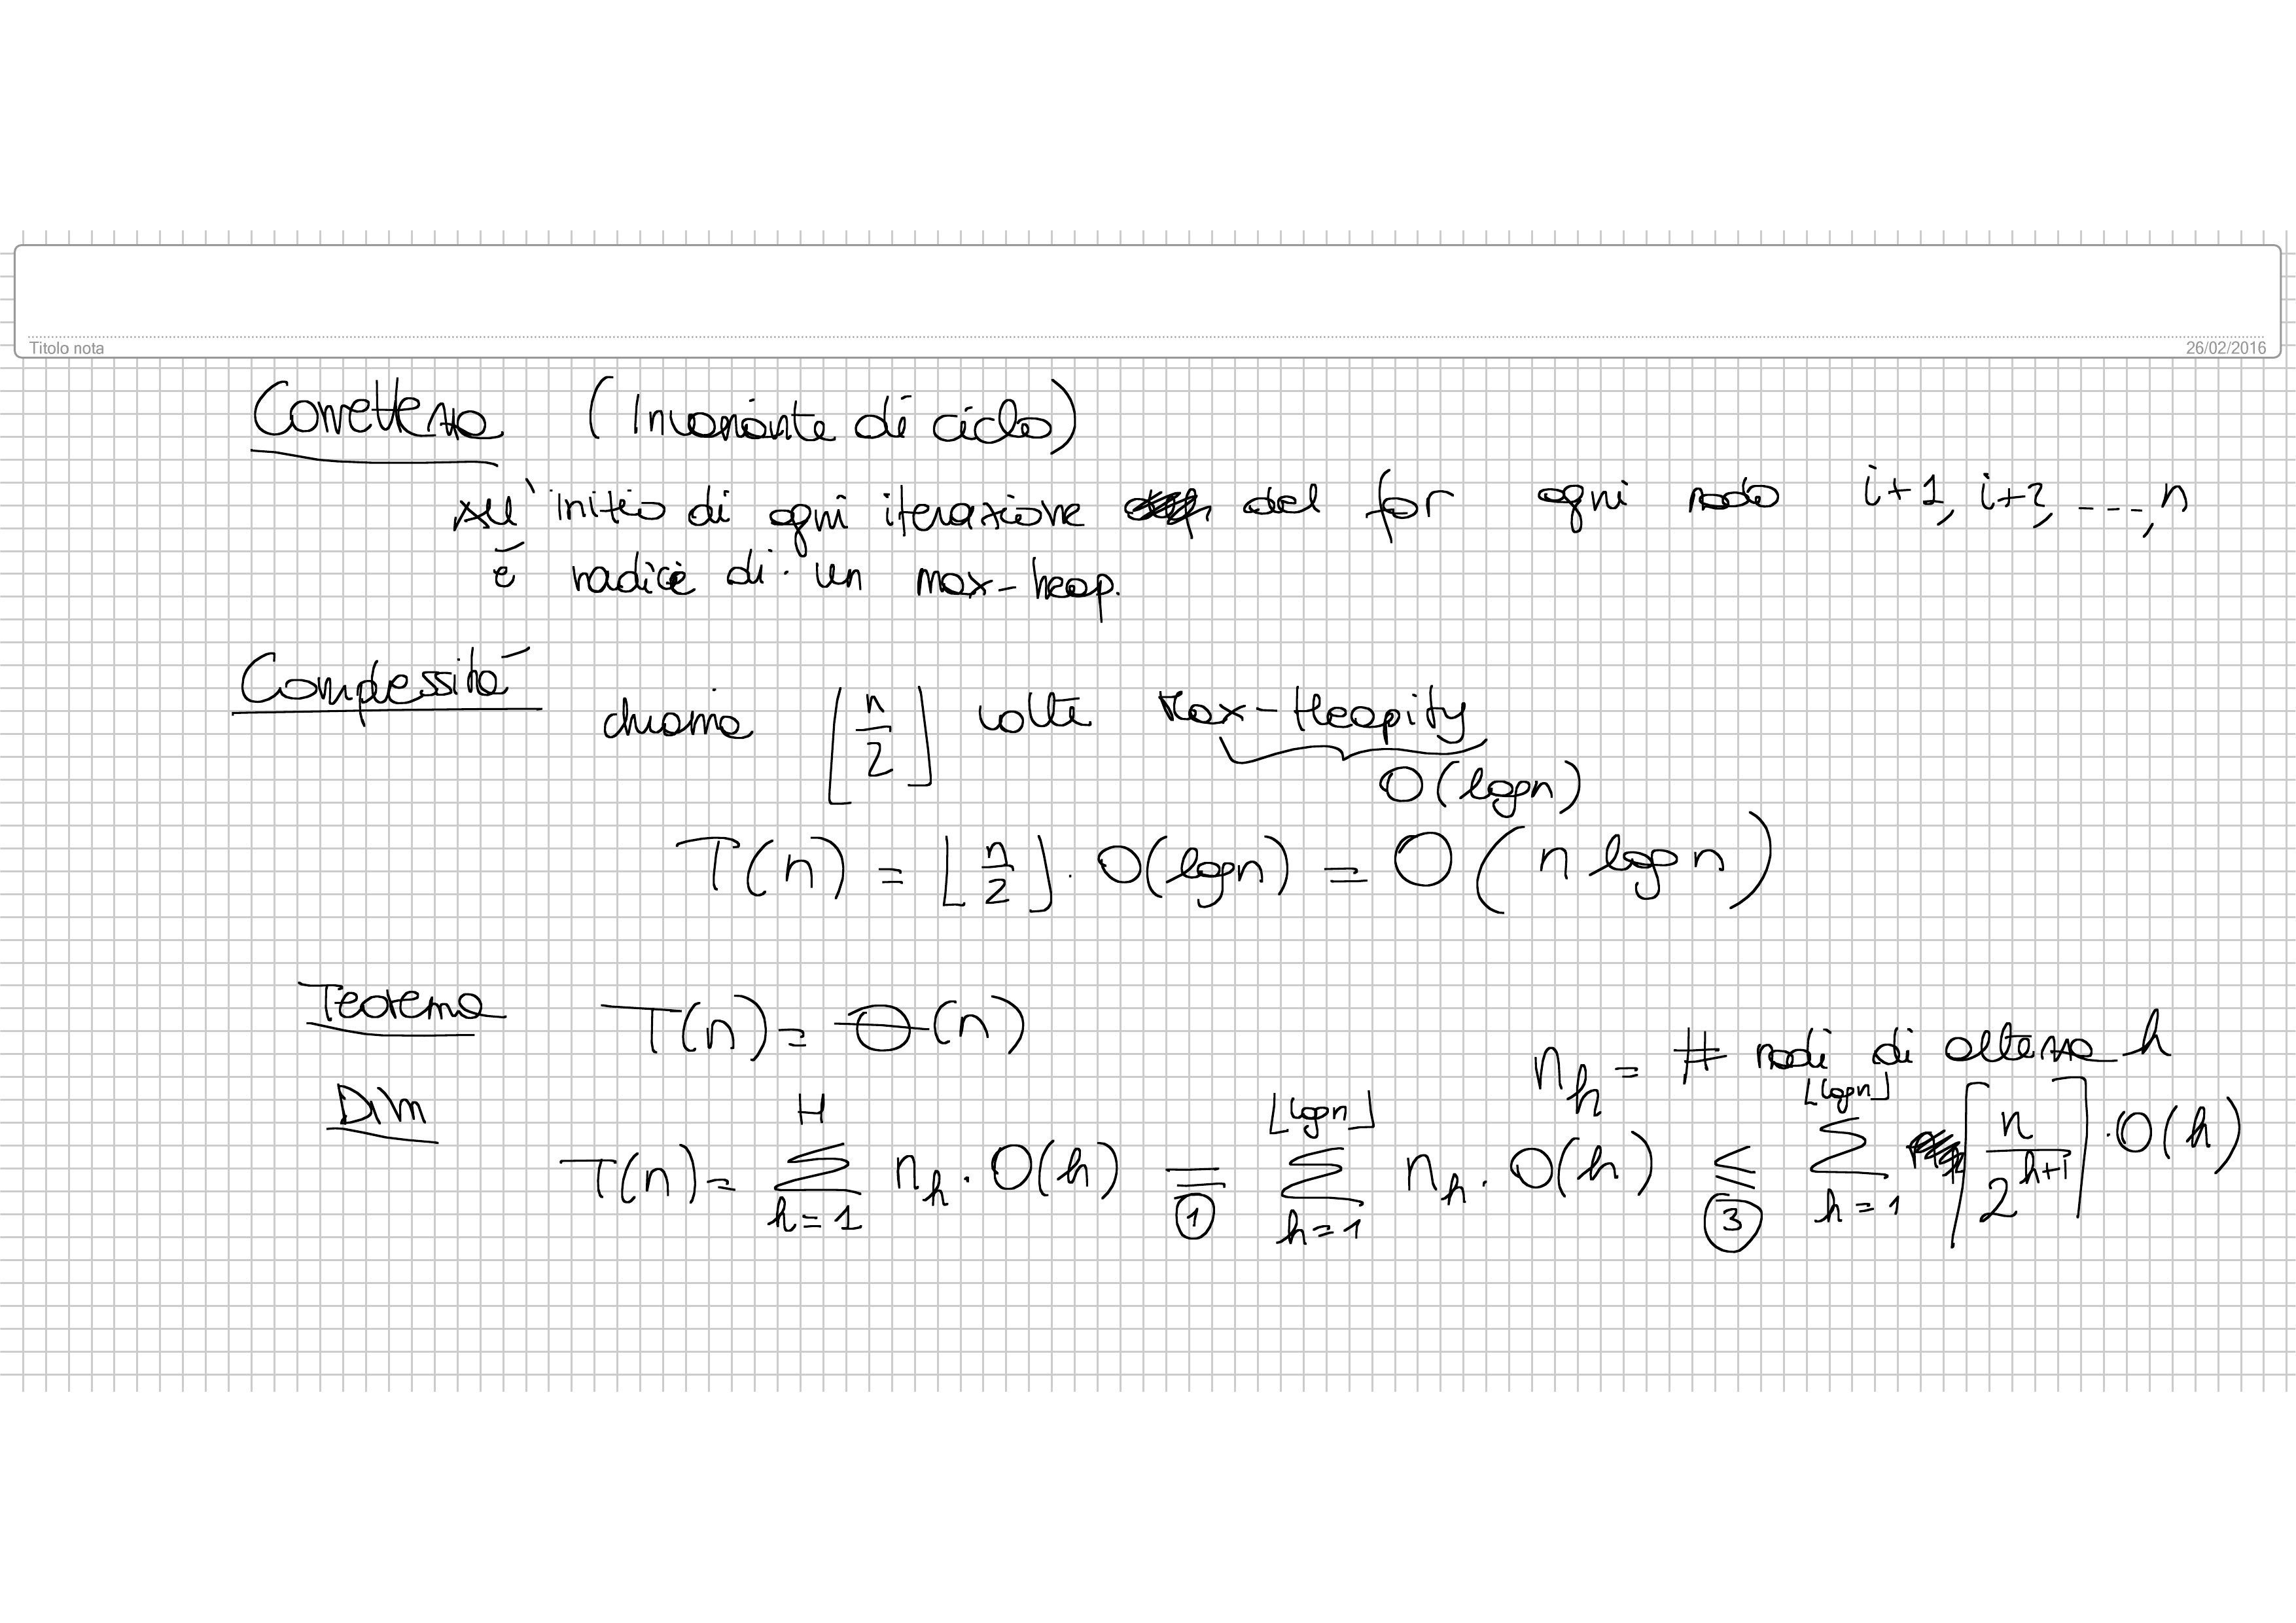 Titolo nota
26/02/2016
Correttezza (Invariante di ciclo)
All'inizio di ogni iterazione del for ogni nodo i+1, i+2, ----, n
é radice di un max-heap.
Complessitá
chiama ⌊n/2⌋ volte Max-Heapify
O(logn)
T(n) = ⌊n/2⌋ · O(logn) = O(n log n)
Teorema T(n) = Θ(n)
n_h = # nodi di altezza h
Dim
T(n) = ∑_{h=1}^{H} n_h · O(h) =① ∑_{h=1}^{⌊logn⌋} n_h · O(h) ≤③ ∑_{h=1}^{⌊logn⌋} ⌈n/2^{h+1}⌉ · O(h)